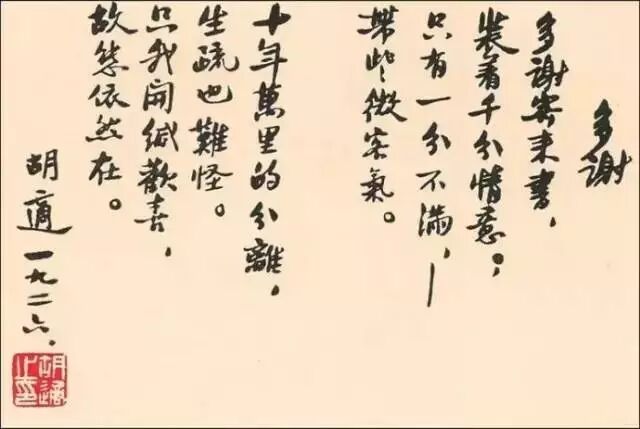 多謝
多謝寄来書，
裝着千分情意。，
只有一分不滿，—
帶些微客氣。
十年萬里的分離，
生疏也難怪。
只我開緘歡喜，
故態依然在。
胡適一九二六、
胡適之